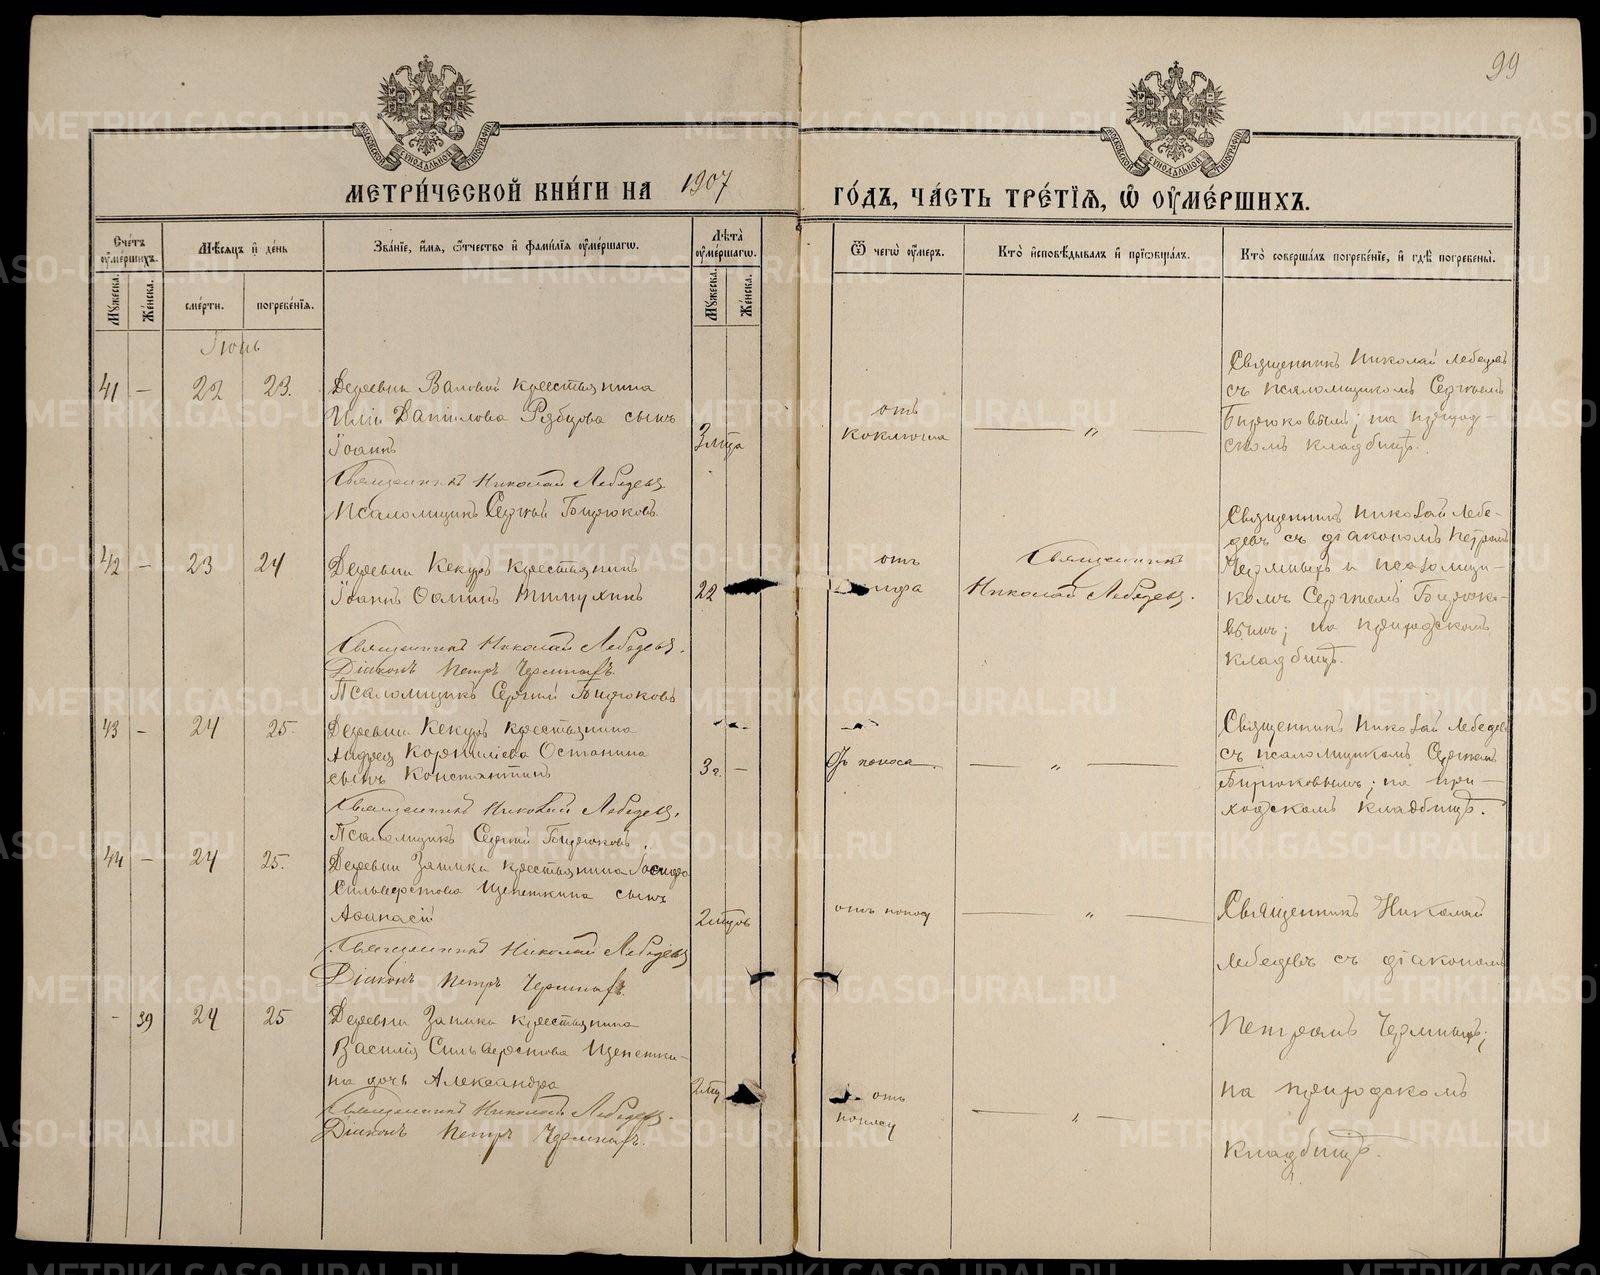 99
МЕТРИ́ЧЕСКОЙ КНИ́ГИ НА 1907 ГО́ДЪ, ЧА́СТЬ ТРЕ́ТІѦ, Ѡ҆ ОУ҆МЕ́РШИХЪ.
Сче́тъ оу҆ме́ршихъ.
Мѣ́сѧцъ и҆ де́нь
Зва́нїе, и҆́мѧ, ѻ҆́тчество и҆ фамѵ́лїѧ оу҆ме́ршагѡ.
Лѣта̀ оу҆ме́ршагѡ.
Ѿ чегѡ̀ оу҆́меръ.
Кто̀ и҆сповѣ́дывалъ и҆ прїѡбща́лъ.
Кто̀ соверша́лъ погребе́нїе, и҆ гдѣ̀ погребены̀.
Мꙋ́жеска.
Же́нска.
сме́рти.
погребе́нїѧ.
Мꙋ́жеска.
Же́нска.
Іюнь
41 — 22 23.
Деревни Валовой крестьянина
Иліи Данилова Рябцова сынъ
Іоаннъ
Священникъ Николай Лебедевъ
Псаломщикъ Сергѣй Бирюковъ
3 лѣта
отъ
коклюша
— „ —
Священникъ Николай Лебедевъ
съ псаломщикомъ Сергѣемъ
Бирюковымъ; на приход-
скомъ кладбищѣ.
42 — 23 24
Деревни Кекуръ крестьянинъ
Іоаннъ Ѳоминъ
Священникъ Николай Лебедевъ.
Діаконъ Петръ
Псаломщикъ Сергій Бирюковъ
22
отъ
Священникъ
Николай Лебедевъ.
Священникъ Николай Лебе-
девъ съ діакономъ Петромъ
и псаломщи-
комъ Сергѣемъ Бирюко-
вымъ; на приходскомъ
кладбищѣ.
43 — 24 25.
Деревни Кекуръ крестьянина
Андрея Корнилiева Останина
сынъ Константинъ
Священникъ Николай Лебедевъ.
Псаломщикъ Сергій Бирюковъ
3 г. —
От поноса
— „ —
Священникъ Николай Лебедевъ
съ псаломщикомъ Сергѣемъ
Бирюковымъ; на при-
ходскомъ кладбищѣ.
44 — 24 25.
Деревни Заимки крестьянина Іосифа
Сильверстова Щепеткина сынъ
Аѳанасій
Священникъ Николай Лебедевъ
Діаконъ Петръ
отъ поносу
— „ —
Священникъ Николай
Лебедевъ съ діакономъ
Петромъ
на приходскомъ
кладбищѣ.
- 39 24 25
Деревни Заимки крестьянина
Василія Сильверстова Щепетки-
на дочь Александра
Священникъ Николай Лебедевъ.
Діаконъ Петръ
отъ
поносу
— „ —
METRIKI.GASO-URAL.RU